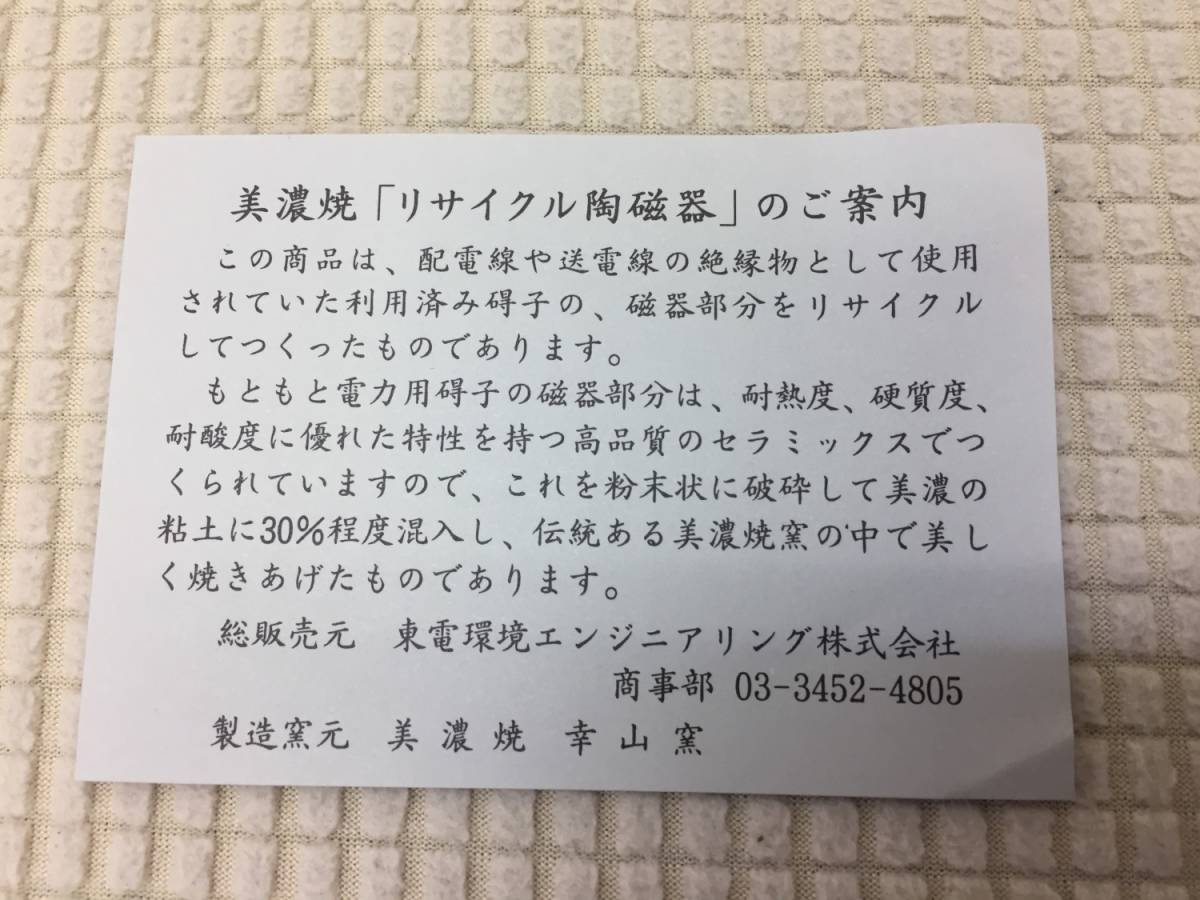 美濃焼「リサイクル陶磁器」のご案内
この商品は、配電線や送電線の絶縁物として使用
されていた利用済み碍子の、磁器部分をリサイクル
してつくったものであります。
もともと電力用碍子の磁器部分は、耐熱度、硬質度、
耐酸度に優れた特性を持つ高品質のセラミックスでつ
くられていますので、これを粉末状に破砕して美濃の
粘土に30%程度混入し、伝統ある美濃焼窯の中で美し
く焼きあげたものであります。
総販売元 東電環境エンジニアリング株式会社
商事部 03-3452-4805
製造窯元 美濃焼 幸山窯